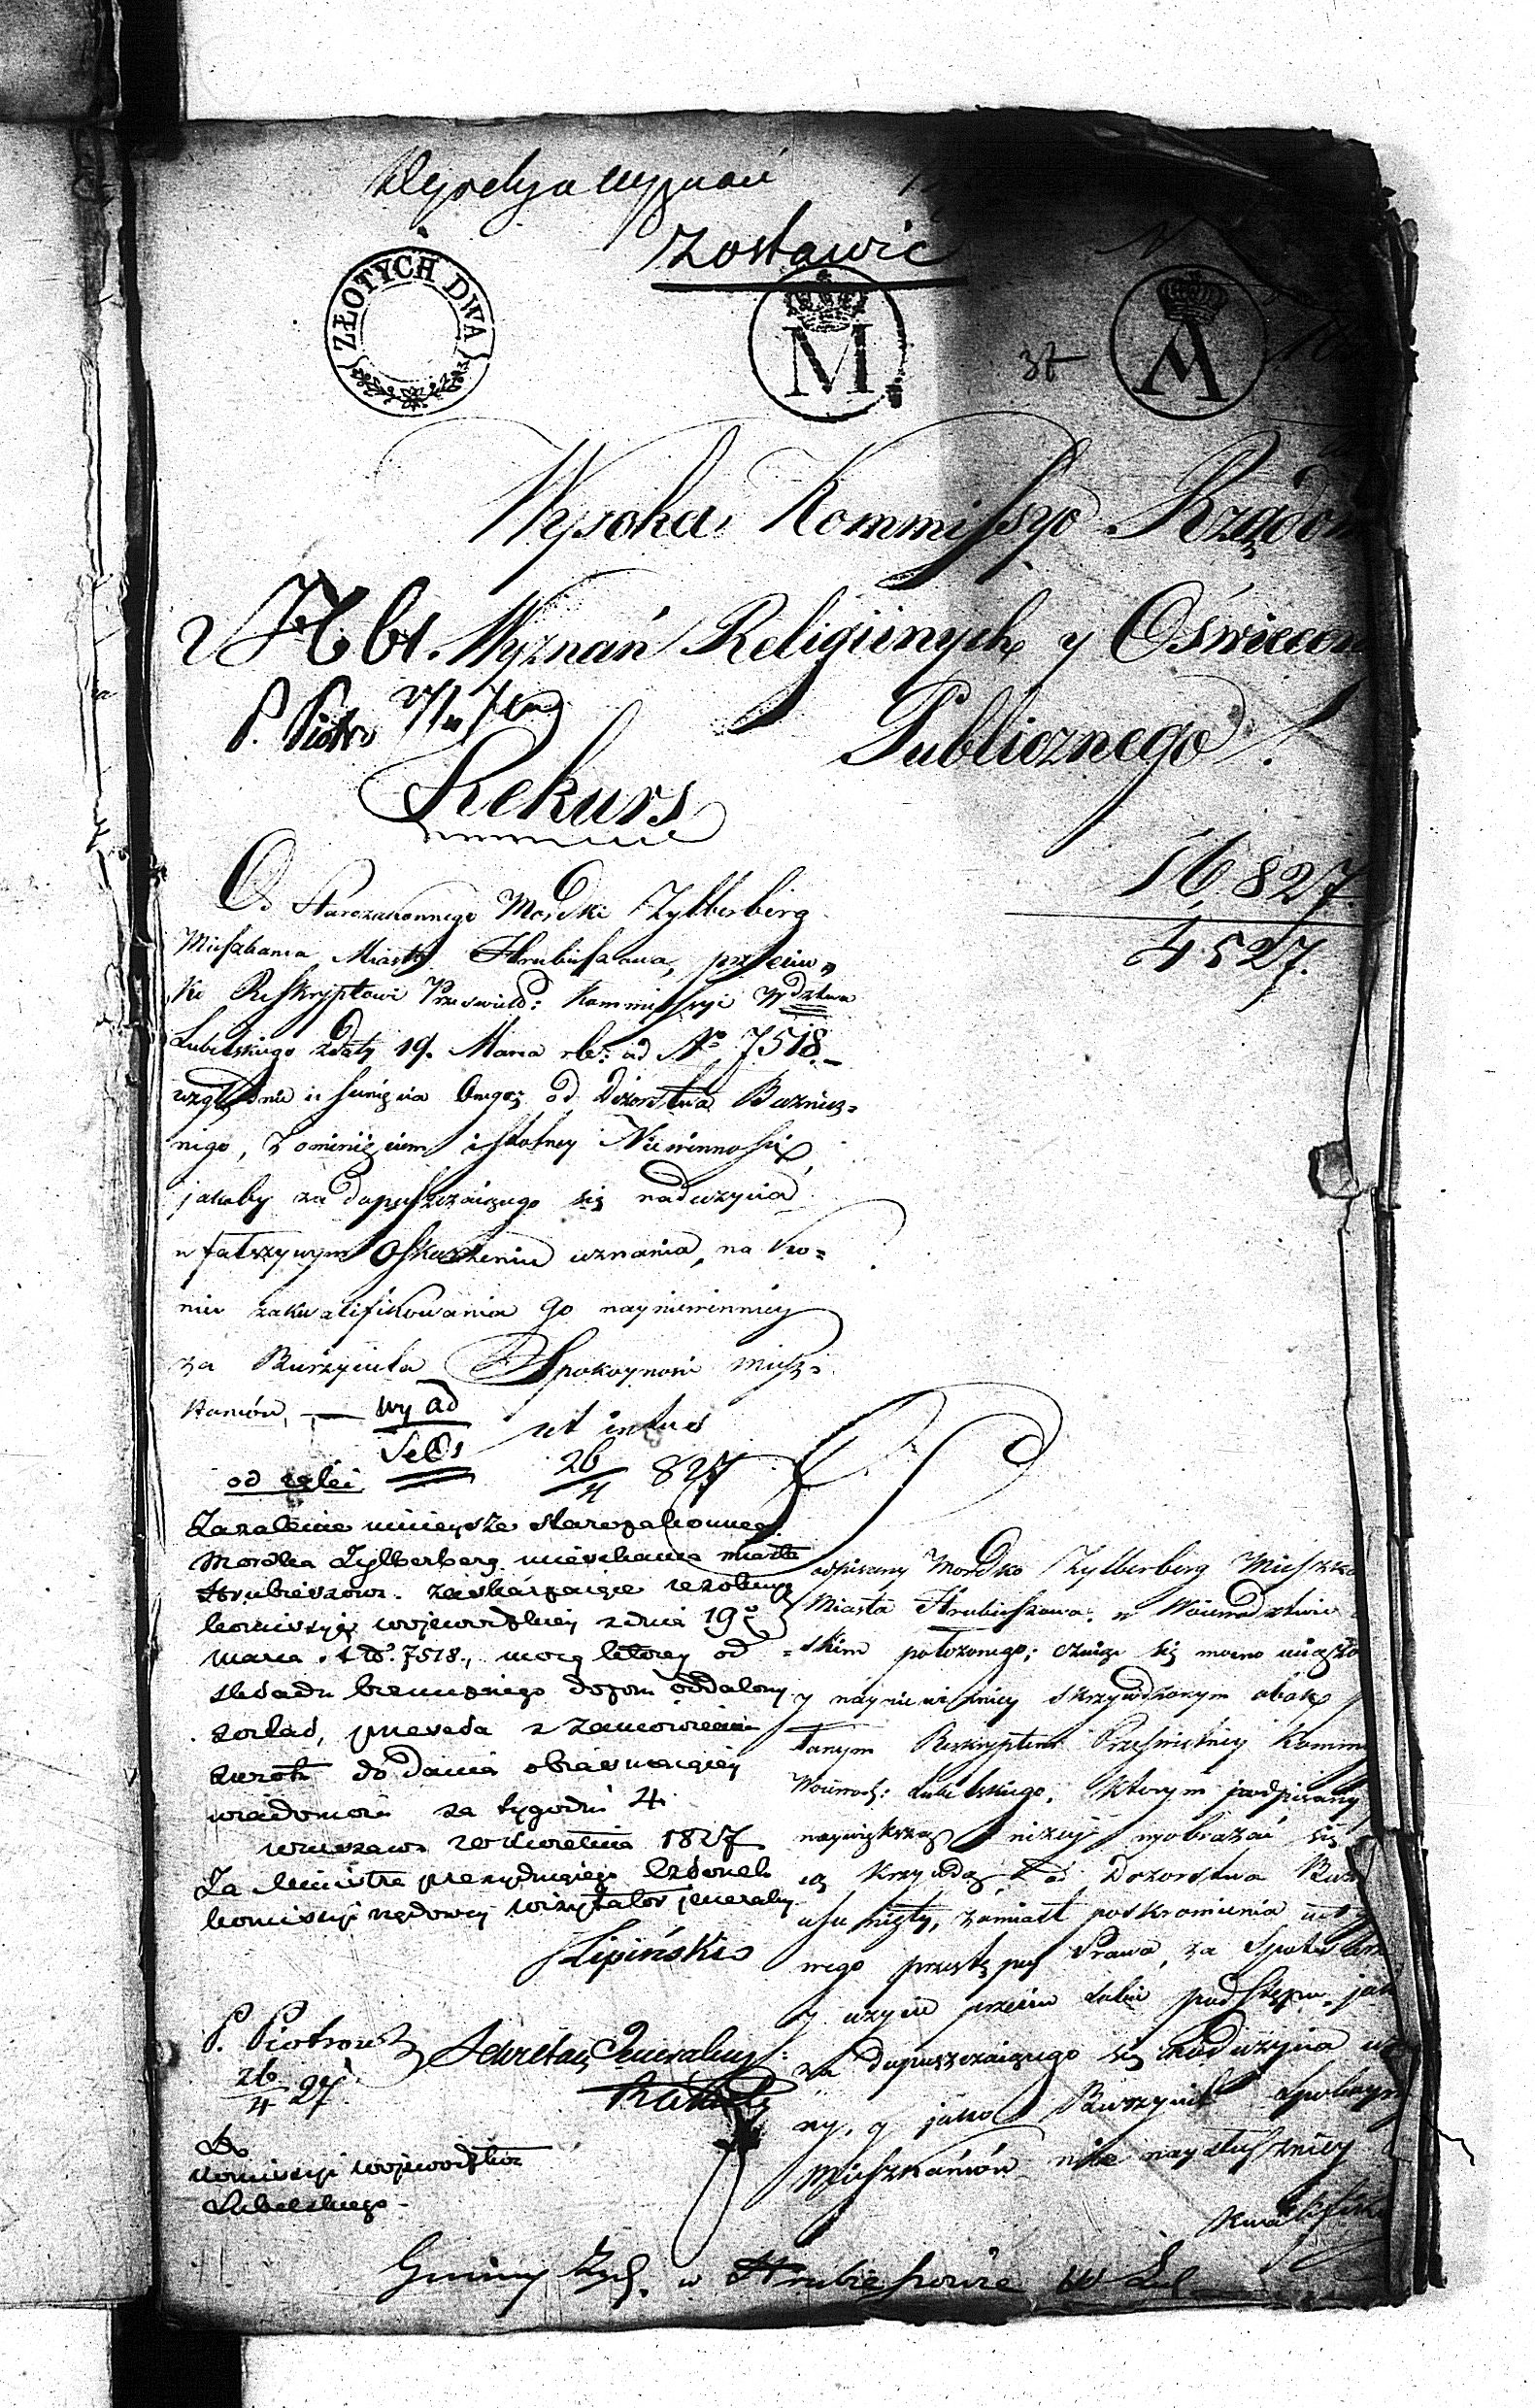 zostawić
ZŁOTYCH DWA
M
A
Wysoka Kommissyo Rządow
Wyznań Religiinych y Oświecen
P. Piotr
Publicznego!
Rekurs
16,827.
4527.
Od Starozakonnego Mordki Zylberberg
Mieszkanca Miasta Hrubieszowa, przeciw=
ko Reskryptowi Prześwietd: Kommissyi Wdztwa
Lubelskiego z daty 19. Marca rb: ad No 7518.
względnie usunięcia onegoż od Dozorstwa Bożnicz=
nego, z ominięciem istotney Niewinności
jakoby za dopuszczaiącego się nadużycia
w fałszywym Oskarżeniu uznania, na ko=
niec zakwalifikowania go nayniewinniey
za Burzyciela Spokoyności miesz=
kańców,
wy ad
ut intus
26/4 827
Zażalenie ninieysze starozakonnego
Mordka Zylberberg mieszkańca miasta
Hrubieszowa. zaskarżaiące rezolucyę
kommissyi wojewodzkiey z dnia 19o
marca. No. 7518., mocą którey od
składu bożniczego dozoru oddalony
został, przesyła z zamowieniem
zwrotu do dania obiaśniaiącey
wiadomości za tygodni 4.
Warszawa 26 Kwietnia 1827
Za Ministra prezyduiącego Członek
kommissyi rządowey wizytator jeneralny
Lipiński
P. Piotrows
26/4 27.
Sekretarz Jeneralny
Do
Kommissyi Wojewodztwa
Lubelskiego
odpisany Mordko Zylberberg Mieszka
Miasta Hrubieszowa. w Woiewodztwie
=skim położonego; czuiąc się mocno uciążo
y nayniewinniey skrzywdzonym obok
Reskryptem Prześwietney Kommi
Woiewod: Lubelskiego, którym podpisany
naywiększą niżeli wyobrażać się
krzywdą, od Dozorstwa Boż
usunięty, zamiast poskromienia
nego przestępcy Prawa, za
y użycie przeciw sobie podstępu, jak
za dopuszczaiącego się nadużycia u
ny, y jako Burzyciel spokoyn
Mieszkańców nie naysłuszniey
kwalifiko
Gminy Żyd. w Hrubieszowie W Lub